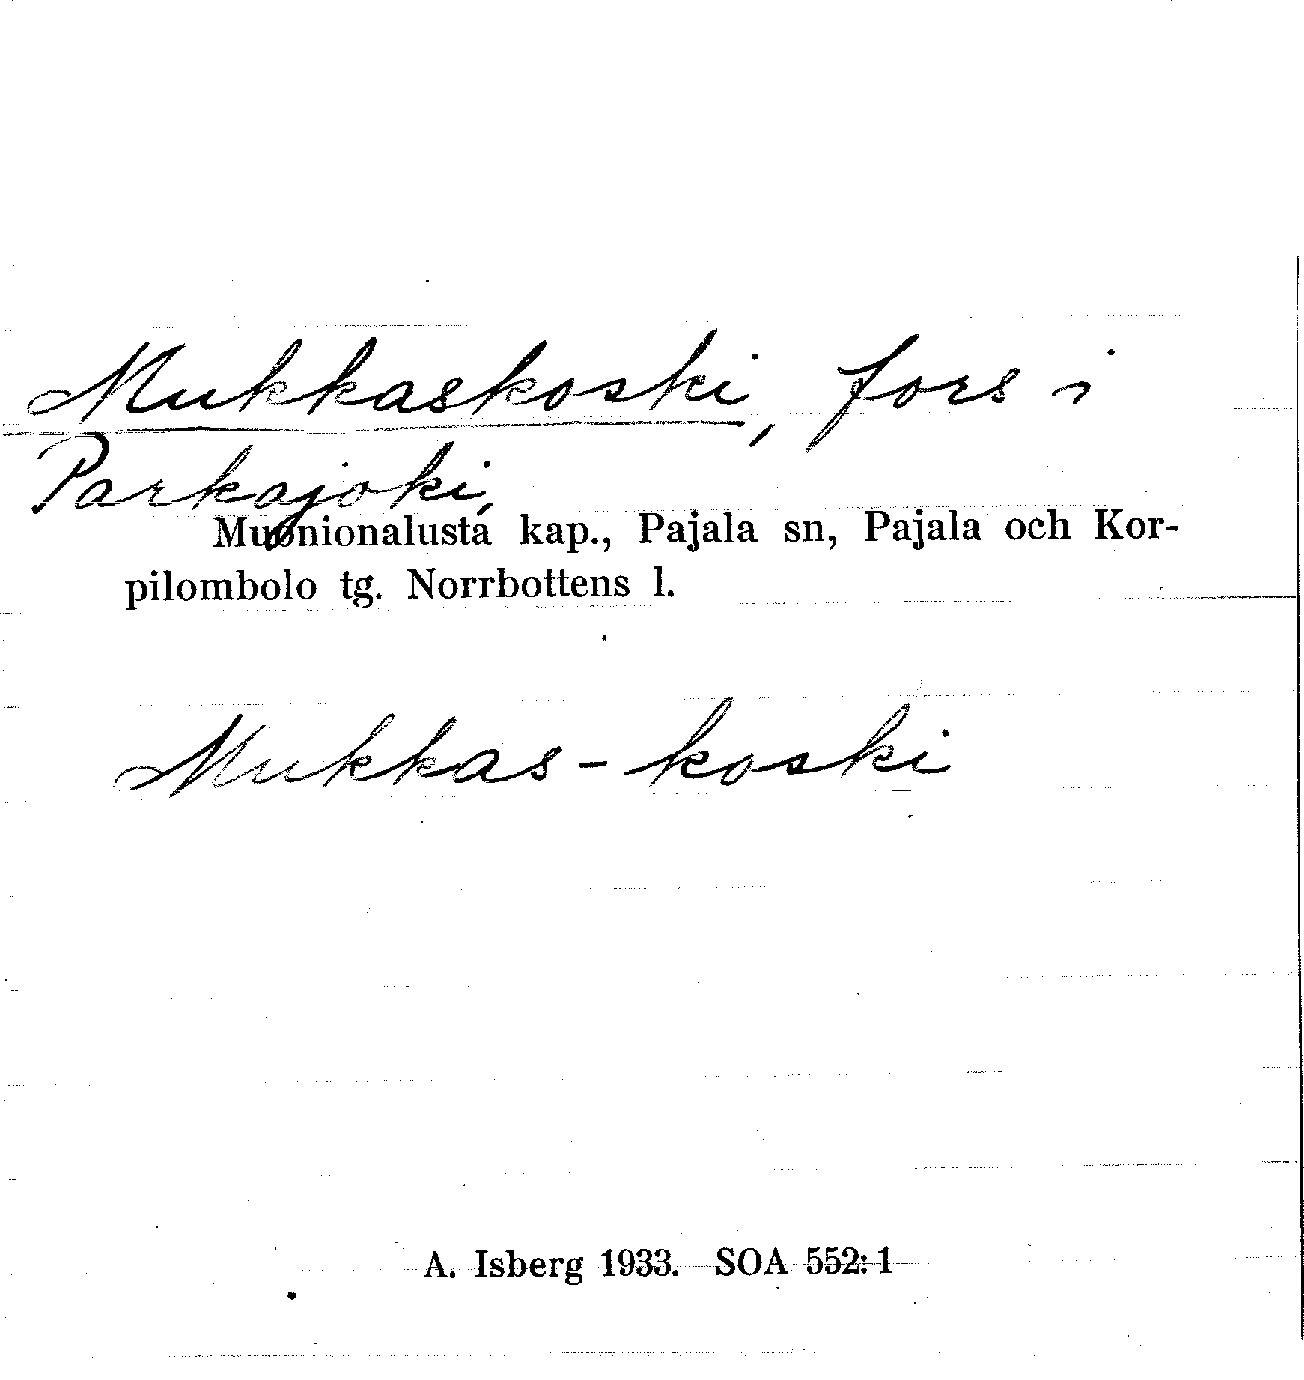 Mukkaskoski, fors i
Parkajoki,
Muonionalusta kap., Pajala sn, Pajala och Kor-
pilombolo tg. Norrbottens l.
Mukkas-koski
A. Isberg 1933. SOA 552:1